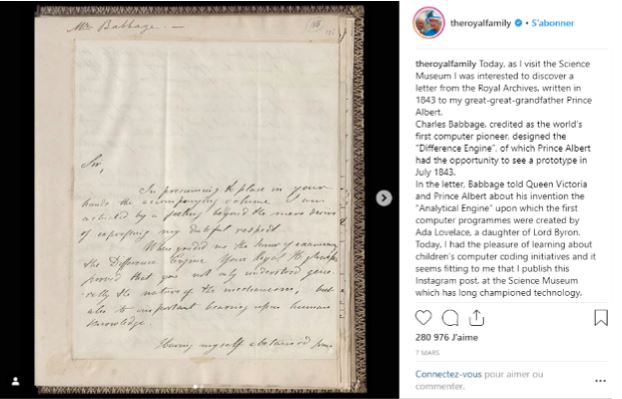 Mr Babbage. —
Sir,
In presuming to place in your
hands the accompanying volume I am
actuated by a feeling beyond the mere desire
of expressing my dutiful respect
When you did me the honor of examining
the Difference Engine Your Royal Highness
proved that you not only understood gene-
rally the nature of the mechanism, but
also its important bearing upon human
knowledge.
Having myself abstained from
theroyalfamily • S'abonner
theroyalfamily Today, as I visit the Science
Museum I was interested to discover a
letter from the Royal Archives, written in
1843 to my great-great-grandfather Prince
Albert.
Charles Babbage, credited as the world's
first computer pioneer, designed the
“Difference Engine”, of which Prince Albert
had the opportunity to see a prototype in
July 1843.
In the letter, Babbage told Queen Victoria
and Prince Albert about his invention the
“Analytical Engine” upon which the first
computer programmes were created by
Ada Lovelace, a daughter of Lord Byron.
Today, I had the pleasure of learning about
children's computer coding initiatives and it
seems fitting to me that I publish this
Instagram post, at the Science Museum
which has long championed technology,
280 976 J'aime
7 MARS
Connectez-vous pour aimer ou
commenter.